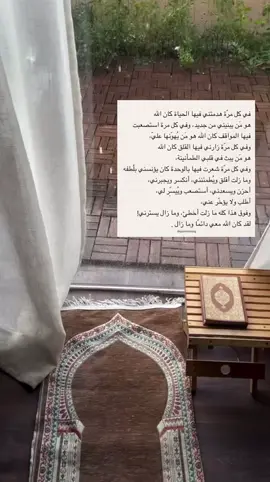 في كل مرّة هدمتني فيها الحياة كان الله
هو مَن يبنيني من جديد، وفي كل مرة استصعبت
فيها المواقف كان الله هو مَن يُهوّنها عليّ،
وفي كل مرّة زارني فيها القلق كان الله
هو مَن يبث في قلبي الطمأنينة،
وفي كل مرّة شعرت فيها بالوحدة كان يؤنسني بلُطفه
وما زلت أقلق ويُطمئنني، أنكسر ويجبرني،
أحزن ويسعدني، أستصعب ويُيسّر لي،
أطلب ولا يؤخّر عني،
وفوق هذا كله ما زلت أخطئ، وما زال يسترني!
لقد كان الله معي دائمًا وما زال .